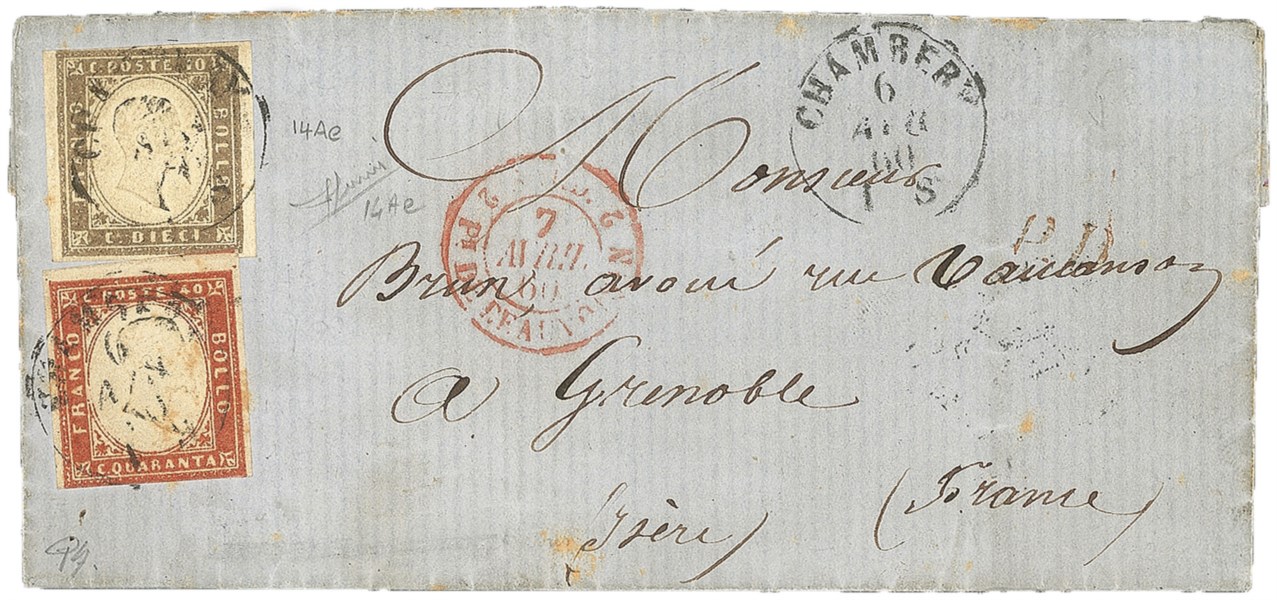 C. POSTE 10
BOLLO
C. DIECI
14Ae
14Ae
C. POSTE 40
FRANCO
BOLLO
C. QUARANTA
6
CHAMBERY
6
APR
60
1 S
7
AVRIL
60
P.D.
Monsieur
Brun, avoué rue Vaucanson
à Grenoble
(France)
Isère)